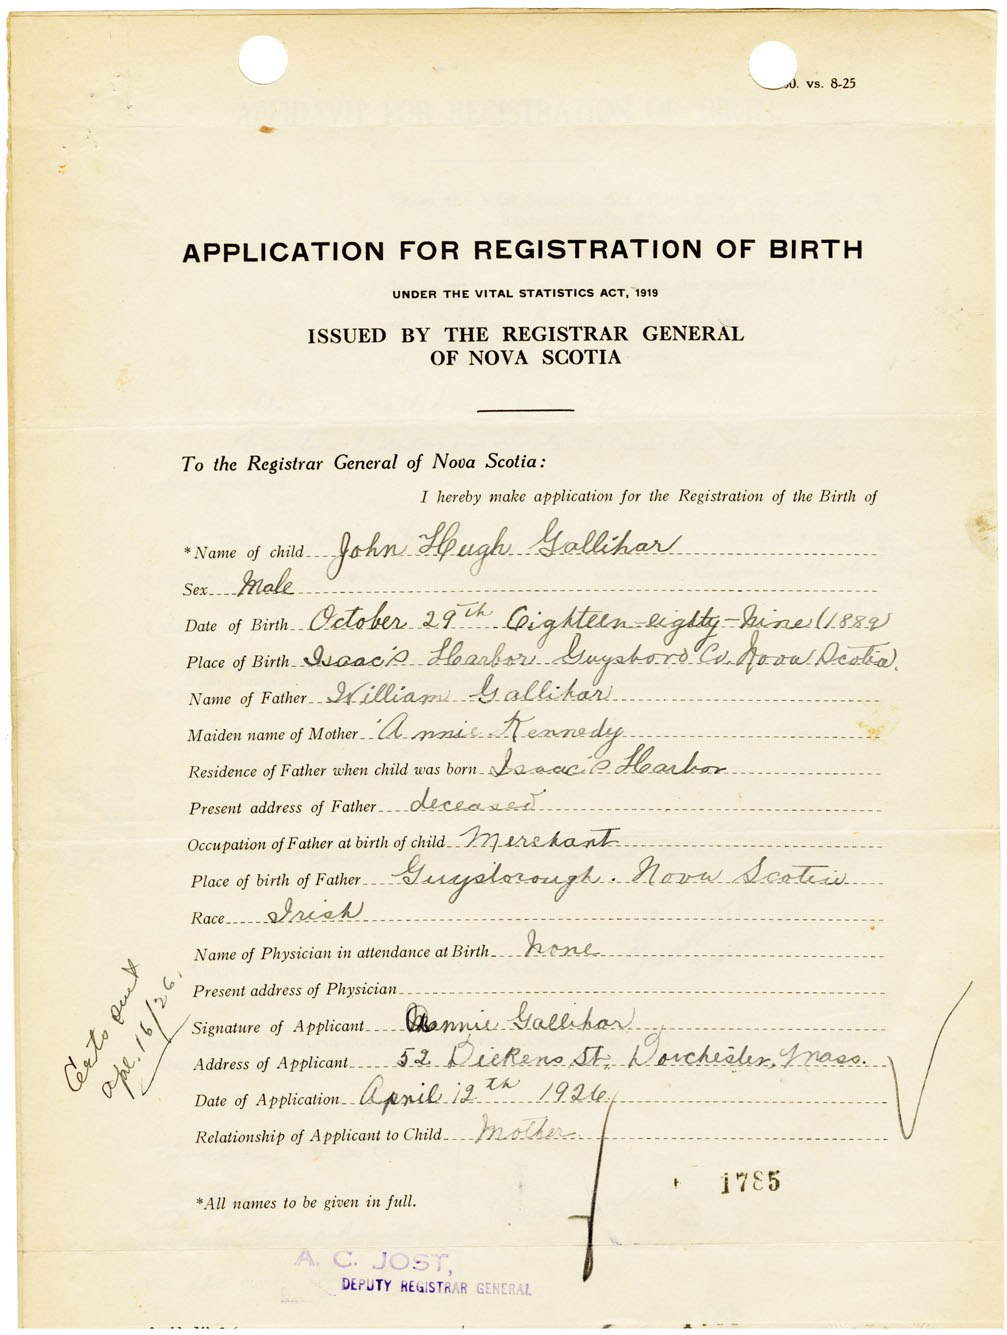 0. vs. 8-25
APPLICATION FOR REGISTRATION OF BIRTH
UNDER THE VITAL STATISTICS ACT, 1919
ISSUED BY THE REGISTRAR GENERAL
OF NOVA SCOTIA
To the Registrar General of Nova Scotia:
I hereby make application for the Registration of the Birth of
*Name of child John Hugh Gallihar
Sex Male
Date of Birth October 29th Eighteen-eighty-Nine (1889)
Place of Birth Isaac's Harbor Guysboro Co. Nova Scotia.
Name of Father William Gallihar
Maiden name of Mother Annie Kennedy
Residence of Father when child was born Isaac's Harbor
Present address of Father deceased
Occupation of Father at birth of child Merchant
Place of birth of Father Guysborough. Nova Scotia
Race Irish
Name of Physician in attendance at Birth None
Present address of Physician
Signature of Applicant Annie Gallihar
Address of Applicant 52 Dickens St. Dorchester, Mass.
Date of Application April 12th 1926
Relationship of Applicant to Child Mother
Certs sent
Apl. 16/26.
1785
*All names to be given in full.
A. C. JOST,
DEPUTY REGISTRAR GENERAL